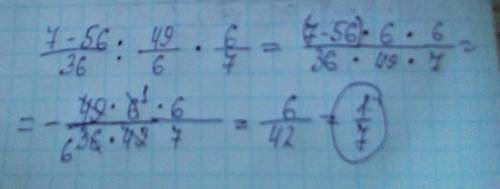 7-56/36 : 49/6 · 6/7 = (7-56) · 6 · 6 / 36 · 49 · 7 =
= - 49 · 6¹ · 6 / 6 36 · 49 · 7 = 6/42 = 1/7